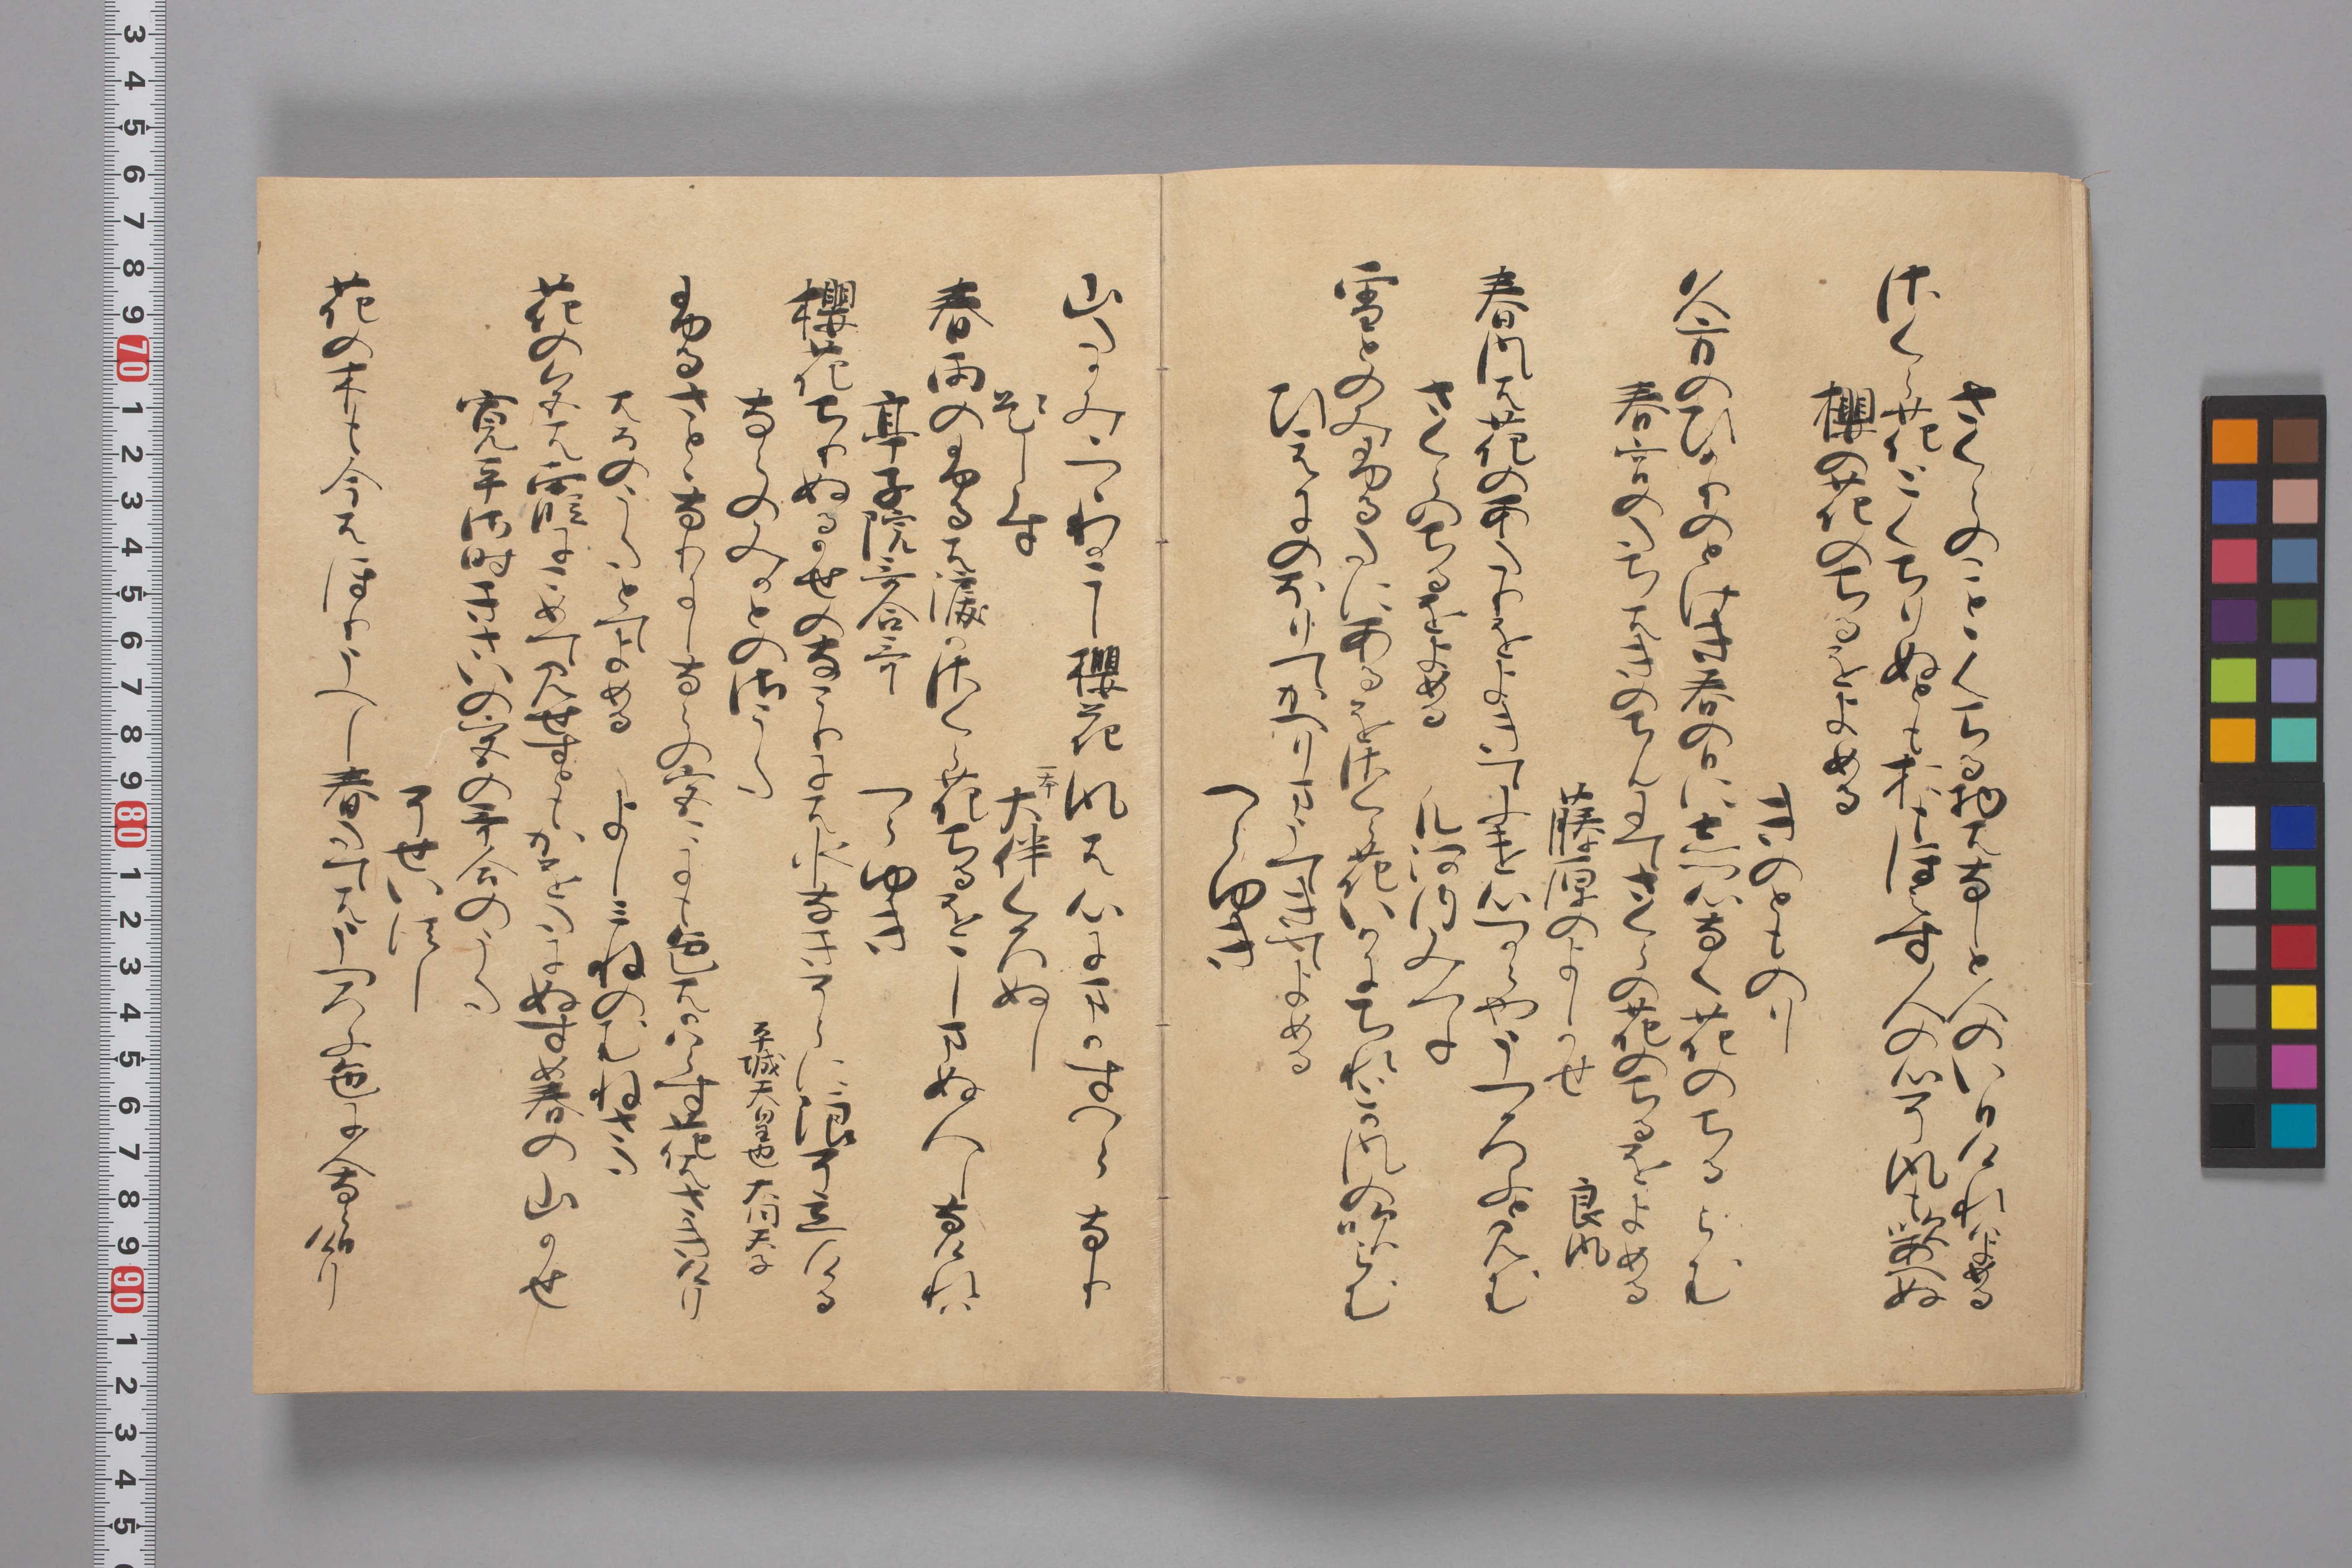 さくらのことくちる物はなしと人のいひけれはよめる
さくら花とくちりぬともおもほえす人の心そ風も吹あへぬ
櫻の花のちるをよめる
きのとものり
久方のひかりのとけき春の日にしつ心なく花のちるらむ
春宮のたちはきのちんにてさくらの花のちるをよめる
藤原のよしかせ
良風
春風は花のあたりをよきてふけ心つからやうつろふと見む
さくらのちるをよめる
凡河内みつね
雪とのみふるたにあるをさくら花いかにちれとか風の吹らむ
ひえにのほりてかへりまうてきてよめる
つらゆき
山たかみつゝわかこし櫻花風は心にまかすへらなり
題しらす
一本
大伴くろぬし
春雨のふるは涙かさくら花ちるをおしまぬ人しなけれは
亭子院哥合哥
つらゆき
櫻花ちりぬる風のなこりには水なきそらに浪そ立ける
ならのみかとの御うた
平城天皇也 大同天子
ふるさととなりにしならの宮こにも色はかはらす花はさきけり
はるのうたとてよめる
よしみねのむねさた
花の色は霞にこめて見せすともかをたにぬすめ春の山かせ
寛平御時きさいの宮の哥合のうた
そせいほうし
花の木も今はほりうへし春たてはうつろふ色に人ならひけり